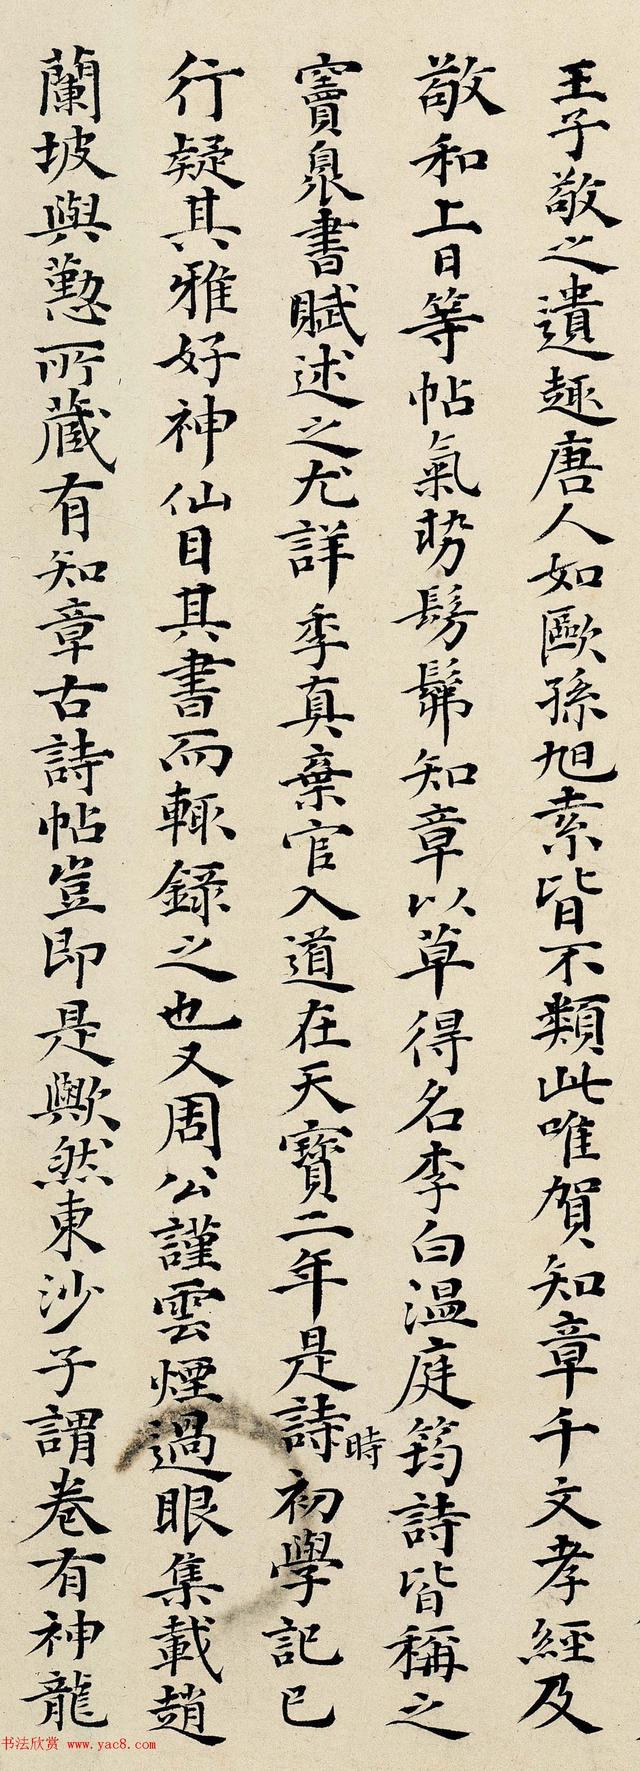 王子敬之遺趣唐人如歐孫旭素皆不類此唯賀知章千文孝經及
敬和上日等帖氣勢髣髴知章以草得名李白温庭筠詩皆稱之
竇泉書賦述之尤詳季真棄官入道在天寶二年是詩時初學記已
行疑其雅好神仙目其書而輒錄之也又周公謹雲煙過眼集載趙
蘭坡與懃所藏有知章古詩帖豈即是歟然東沙子謂卷有神龍
书法欣赏 www.yac8.com